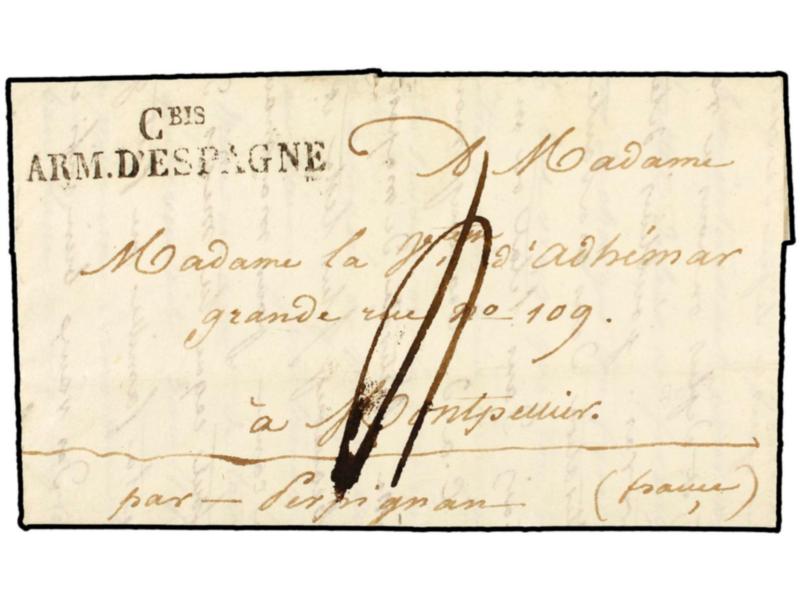 CBIS
ARM.D'ESPAGNE
A Madame
Madame la d'adhémar
grande rue no 109.
à Montpellier.
par — Perpignan (france)